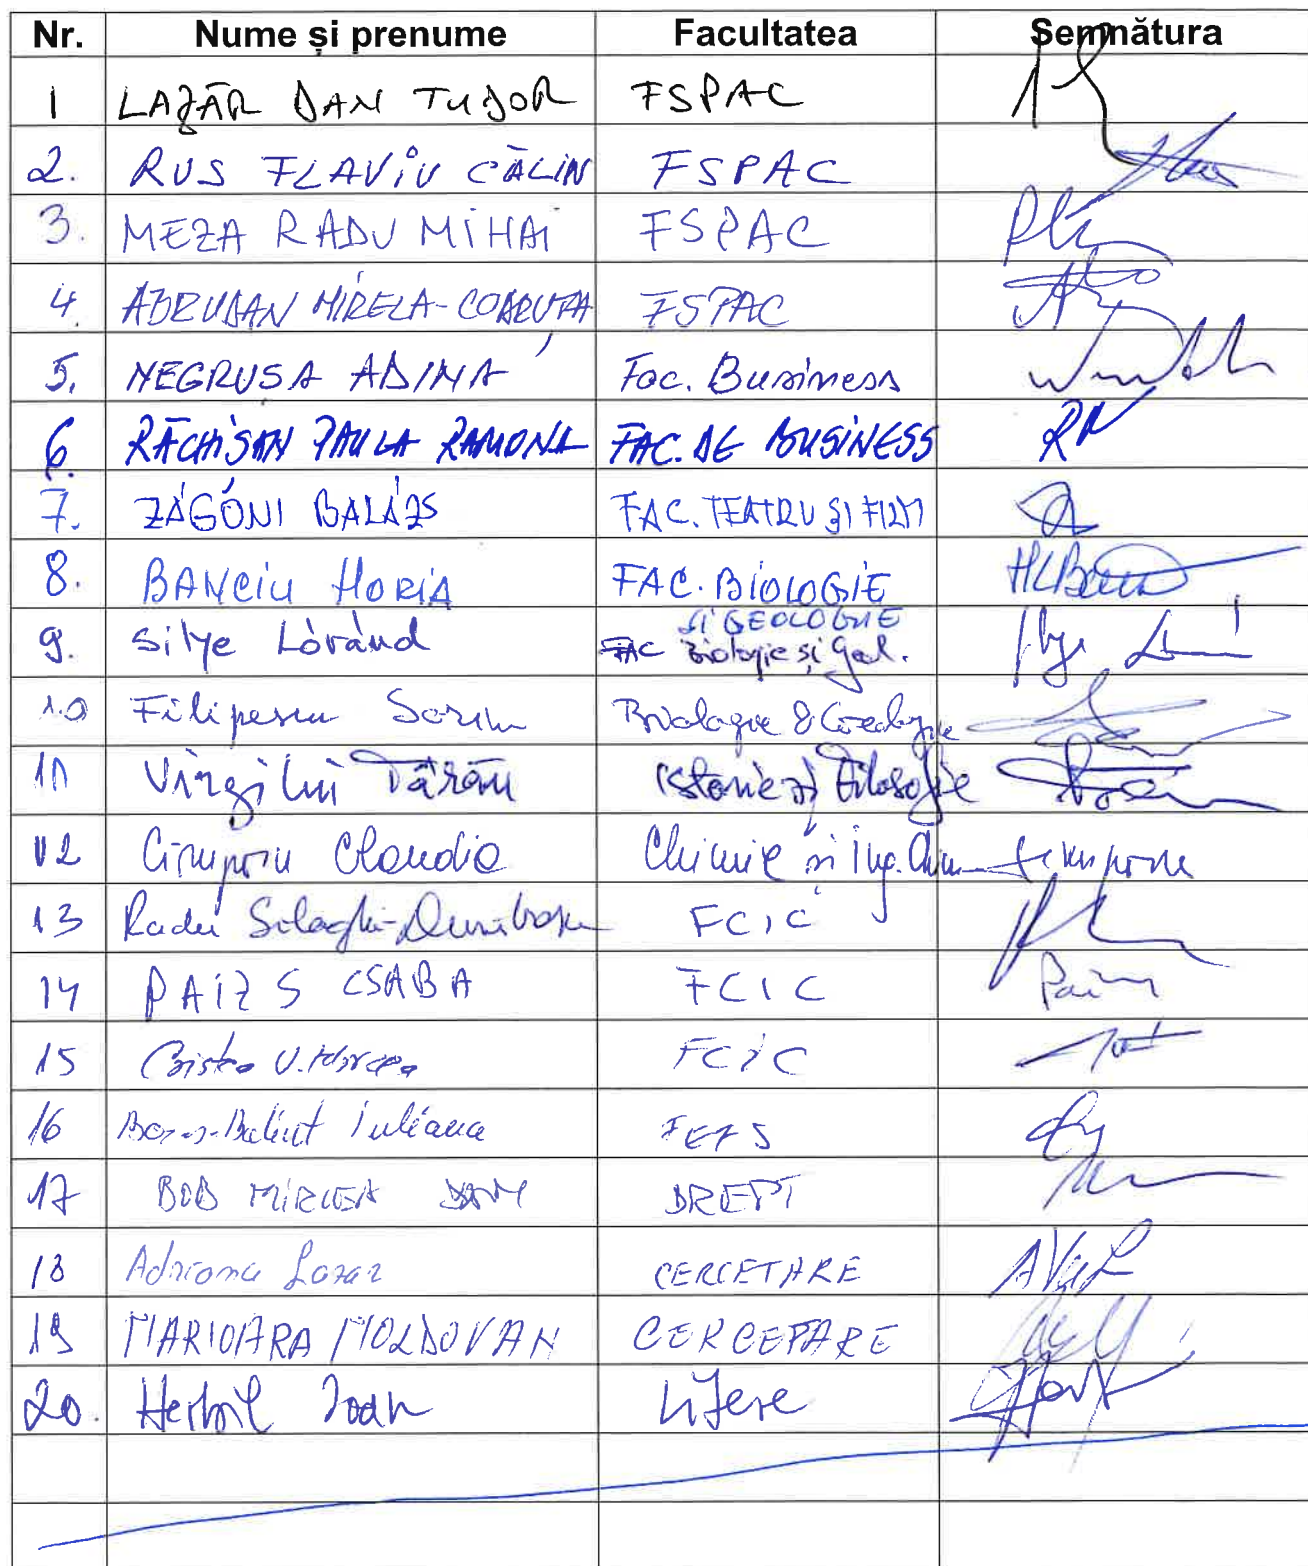 Nr. Nume și prenume Facultatea Semnătura
1 LAZĂR DAN TUDOR FSPAC
2. RUS FLAVIU CĂLIN FSPAC
3. MEZA RADU MIHAI FSPAC
4. ABRUDAN MIRELA-CODRUȚA FSPAC
5. NEGRUSA ADINA Fac. Business
6. RĂCHIȘAN PAULA RAMONA FAC. DE BUSINESS
7. ZÁGONI BALÁZS FAC. TEATRU ȘI FILM
8. BANCIU HORIA FAC. BIOLOGIE
ȘI GEOLOGIE
9. Silye Lóránd FAC Biologie și Geol.
10 Filipescu Sorin Biologie & Geologie
11 Virgiliu Țârău Istorie și Filosofie
12 Cimpoiu Claudia Chimie și Ing. Chim
13 Radu Silaghi-Dumitrescu FCIC
14 PAIZS CSABA FCIC
15 V. Mircea FCIC
16 Boros-Balint Iuliana FEFS
17 BOB MIRCEA DAN DREPT
18 Adriana Lazar CERCETARE
19 MARIOARA MOLDOVAN CERCETARE
20. Herbil Ioan Litere